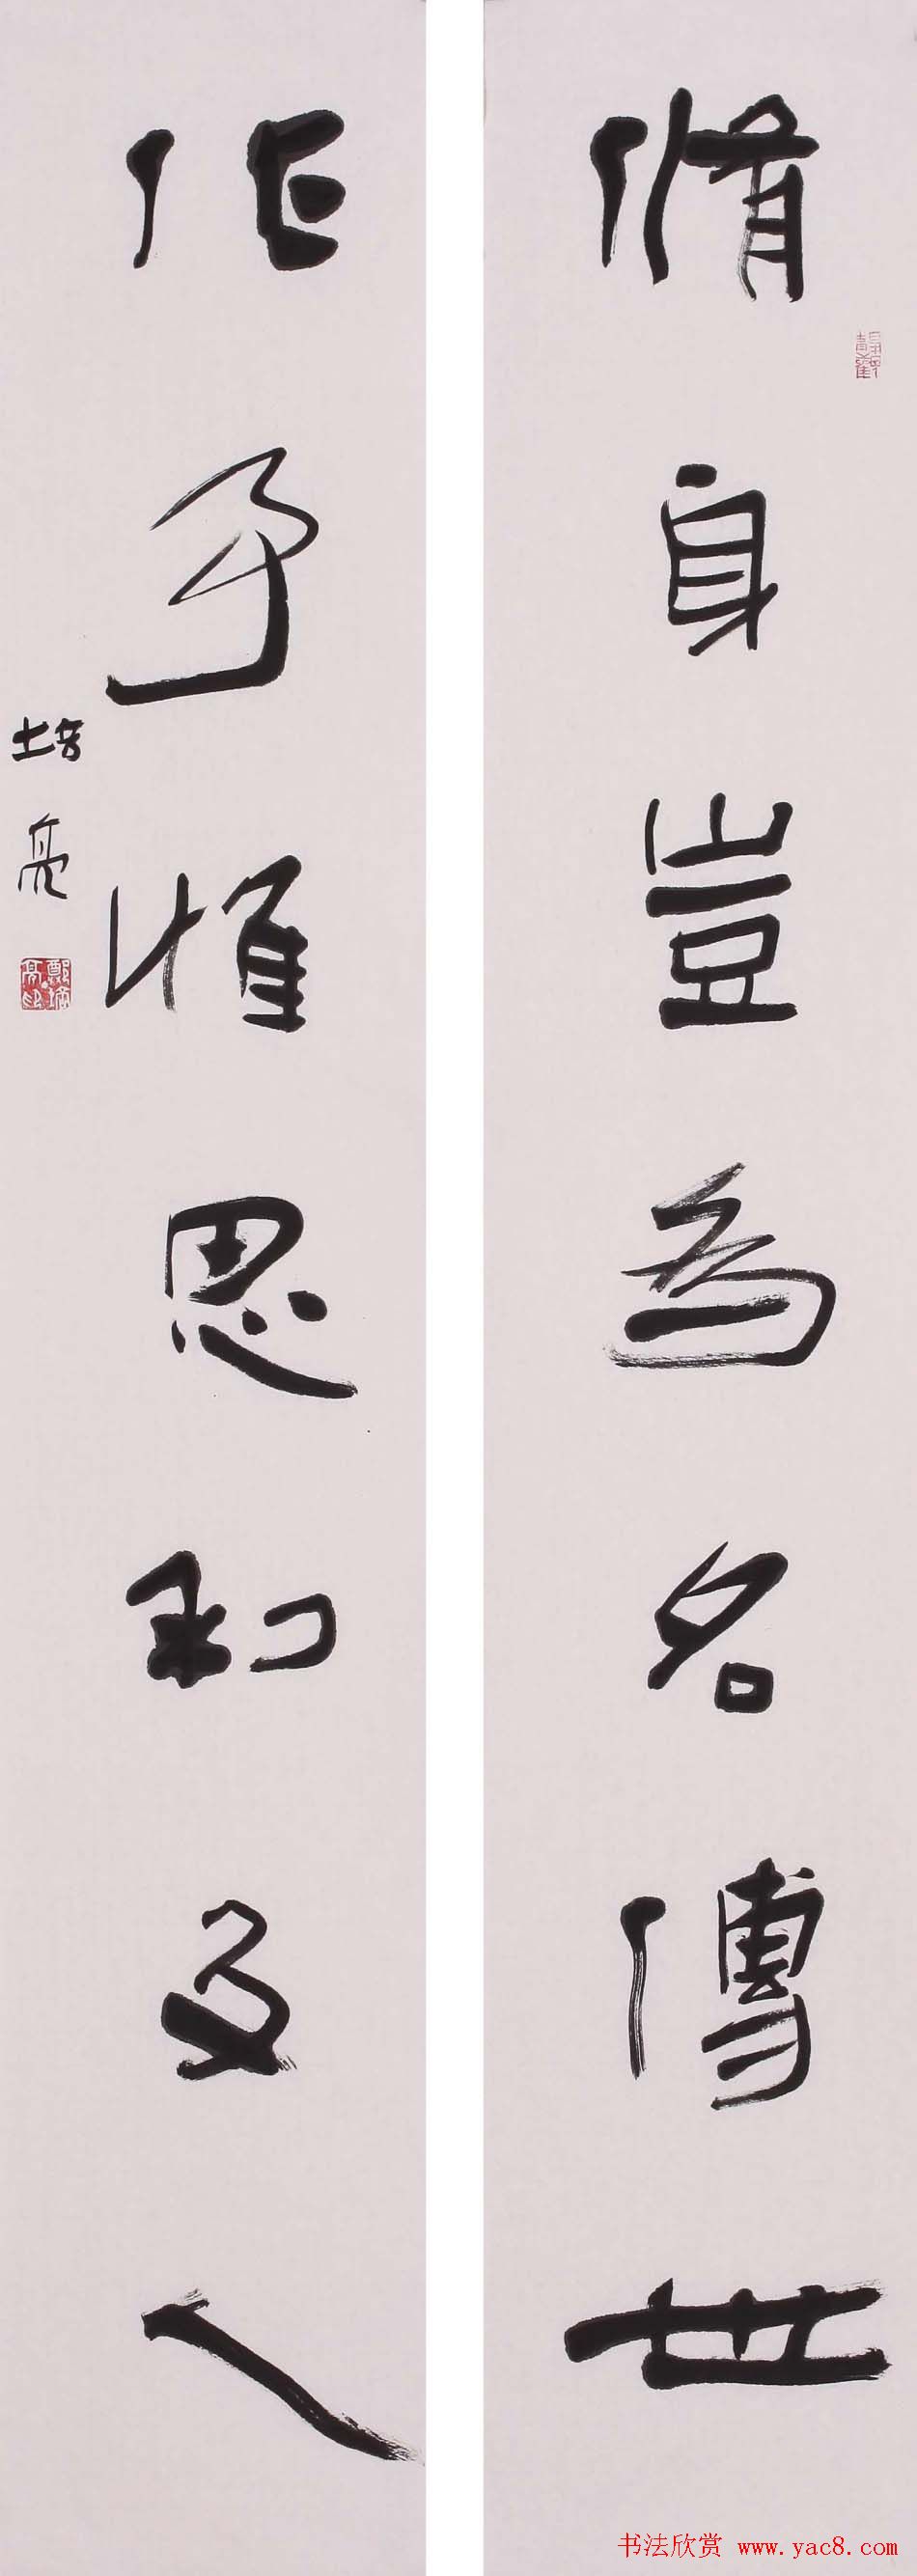 脩身豈為名傳世
作事惟思利及人
培亮
鄭培亮印
书法欣赏 www.yac8.com